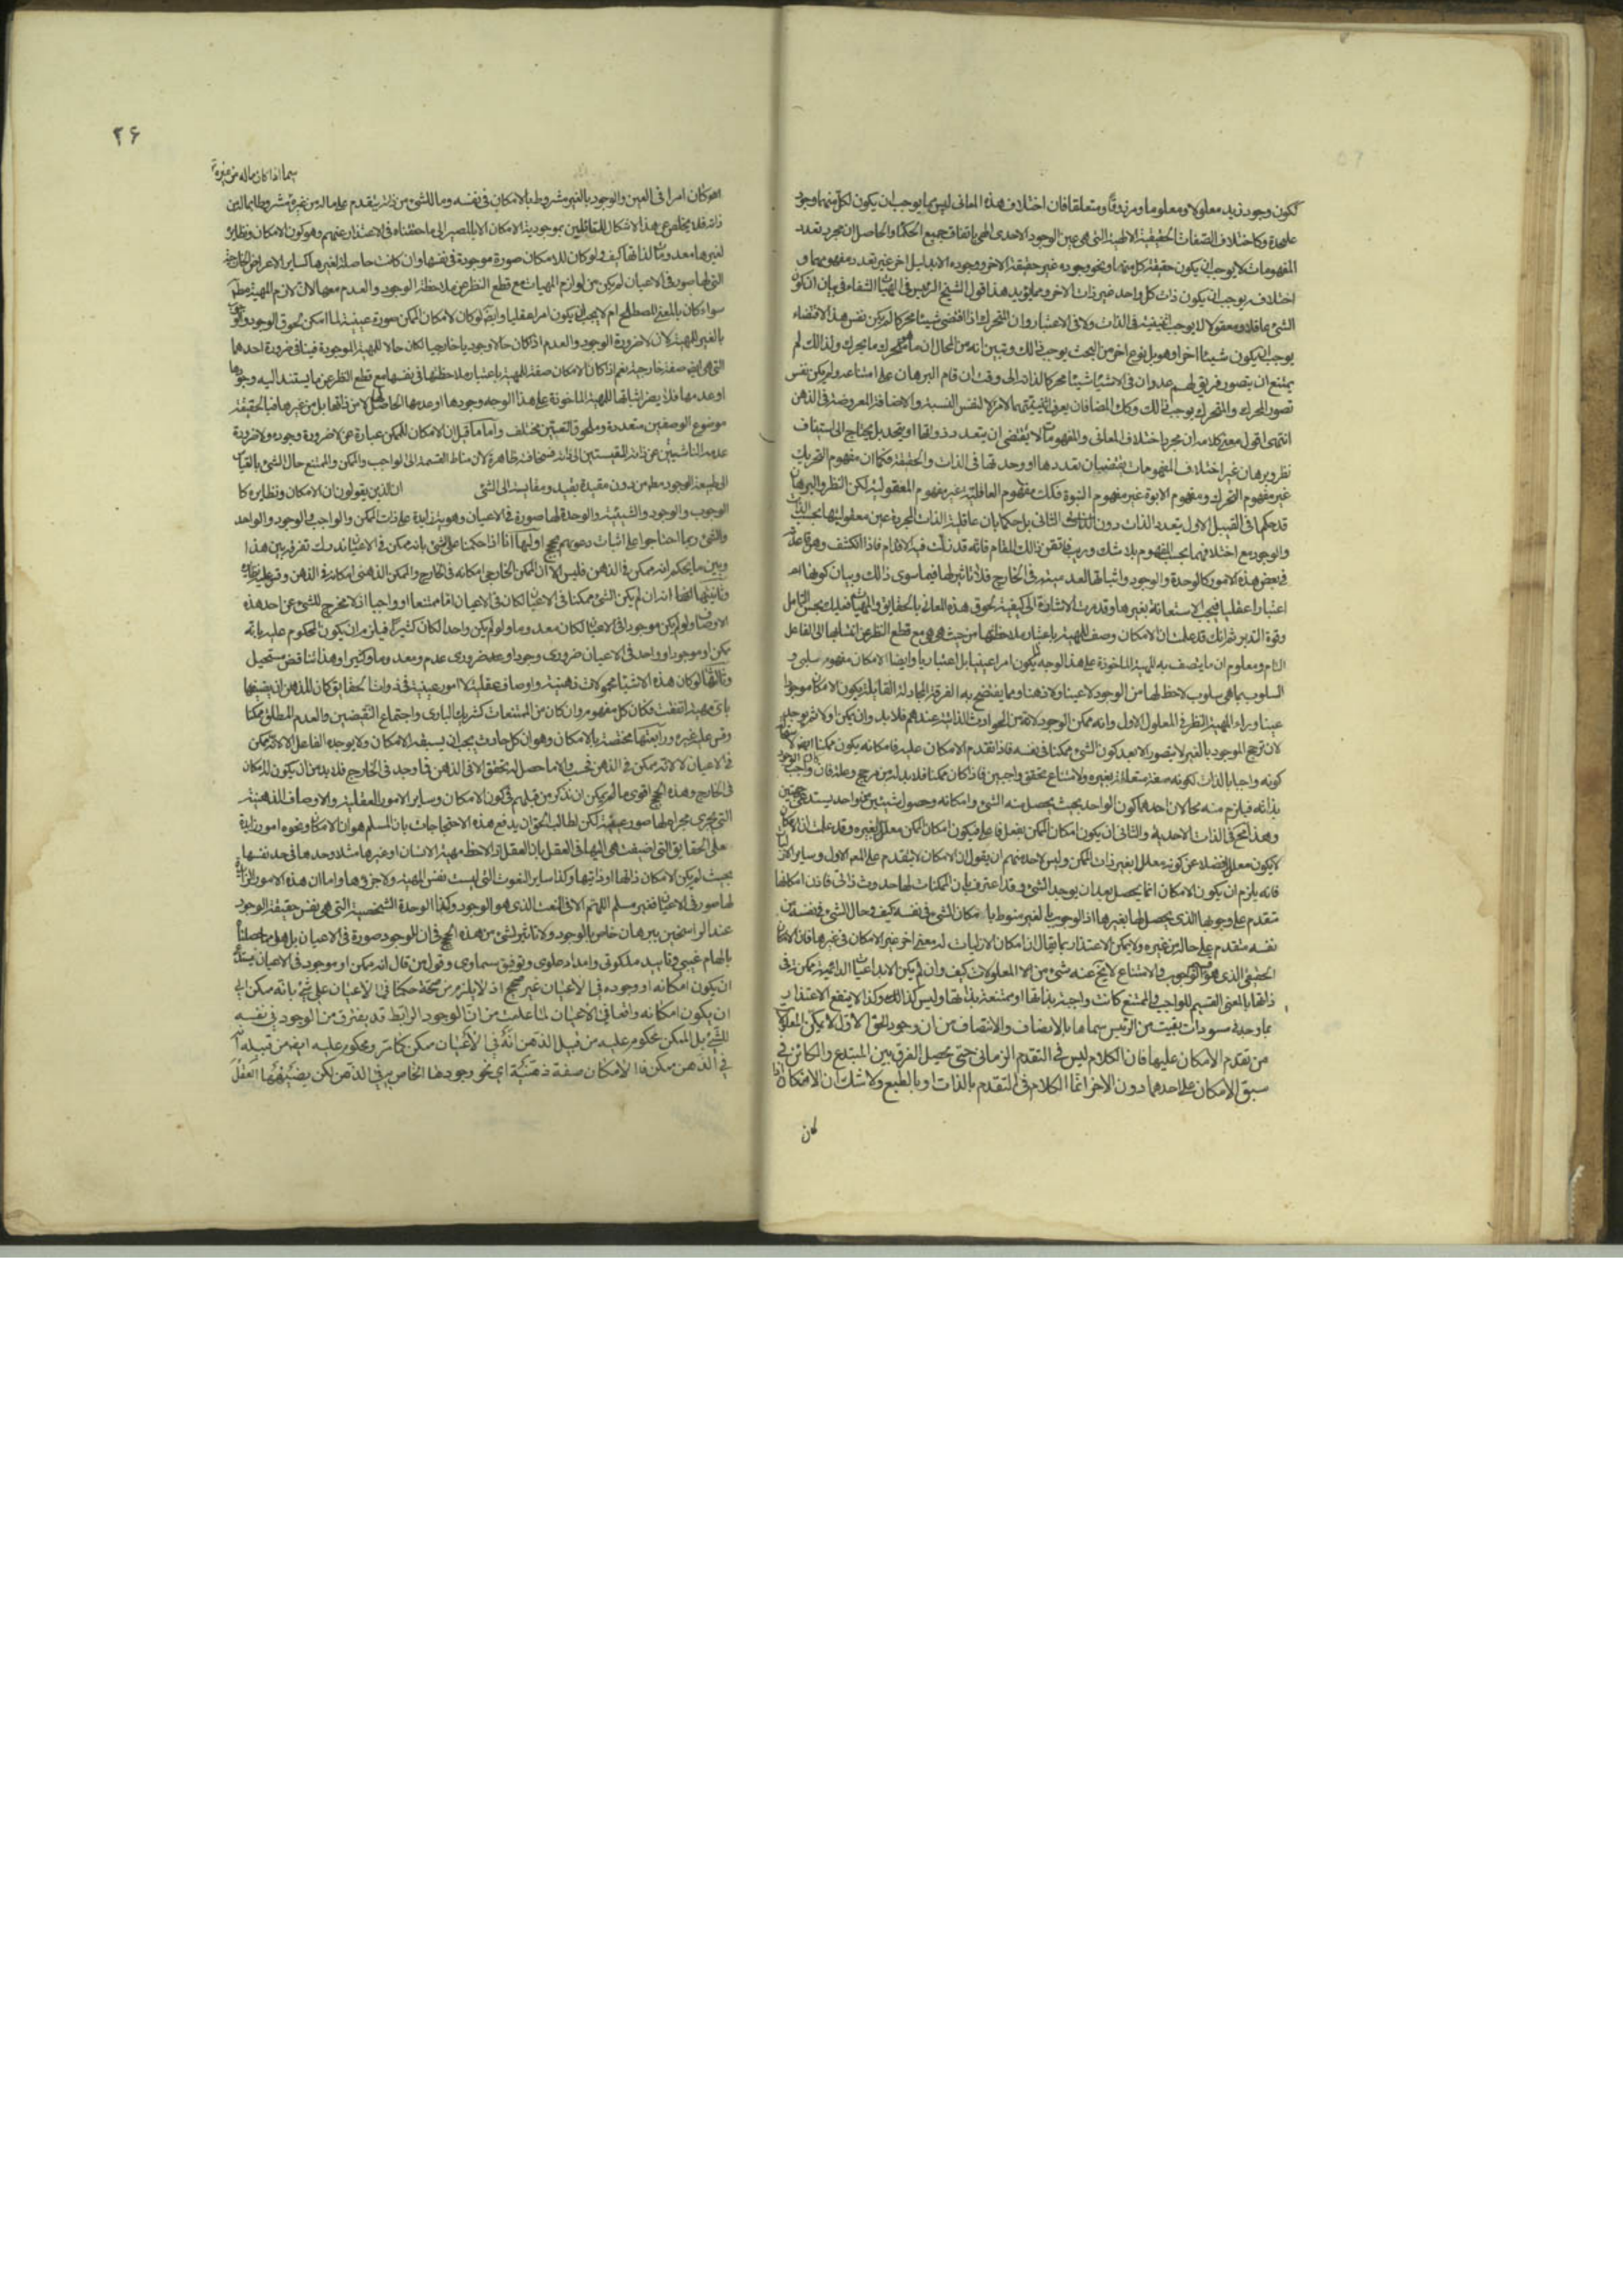 لكون وجود زيد معلولا ومعلوما ومرزوقا ومتعلقا فان اختلاف هذه المعانى ليس مما يوجب ان يكون لكل منها وجود
عليحدة وكاختلاف الصفات الحقيقية الالهية التى هى عين الوجود الاحدى الهى باتفاق جميع الحكماء والحاصل ان مجرد تعدد
المفهومات لا يوجب ان يكون حقيقة كل منها ونحو وجوده غير حقيقة الاخر ووجوده الا بدليل اخر غير تعدد مفهومهما و
اختلافه يوجب ان يكون ذات كل واحد غير ذات الاخر ومما يؤيد هذا قول الشيخ الرئيس فى الهيات الشفاء فى بيان ان كون
الشئ عاقلا ومعقولا لا يوجب اثنينية فى الذات ولا فى الاعتبار وان المتحرك اذا اقتضى شيئا محركا لم يكن نفس هذا الاقتضاء
يوجب ان يكون شيئا اخر او هو بل نوع اخر من البحث يوجب ذلك وتبين انه من المحال ان ما يتحرك ما يحرك ولذالك لم
يمتنع ان يتصور فريق لهم عدد ان فى الاشياء شيئا محركا لذاته الى وقت ان قام البرهان على امتناعه ولم يكن نفس
تصور المحرك والمتحرك يوجب ذلك وكك المضافان يعرف اثنينيتهما لامر لا لنفس النسبة والاضافة المعروضة فى الذهن
انتهى اقول معنى كلامه ان مجرد اختلاف المعانى والمفهومات لا يقتضى ان يتعدد ذواتها او يتحد بل يحتاج الى استيناف
نظر وبرهان غير اختلاف المفهومات يقتضيان تعددها او وحدتها فى الذات والحقيقة فكما ان مفهوم التحريك
غير مفهوم التحرك ومفهوم الابوة غير مفهوم البنوة فكك مفهوم العاقلية غير مفهوم المعقولية لكن النظر والبرهان
قد حكما فى القبيل الاول بتعدد الذات دون الثانى بل حكما بان عاقلية الذات المجردة عين معقوليتها بحسب الذات
والوجود مع اختلافهما بحسب المفهوم بلا شك وريب فاتقن ذالك المقام فانه قد زلت فيه الاقدام
فى بعض هذه الامور كالوحدة والوجود واثباتها فى الخارج فلا تاثير لها فيما سوى ذالك وبيان كونها
اعتبارا عقليا فيجب الاستعانة بغيرها وقد مرت الاشارة الى كيفية لحوق هذه المعانى بالحقايق والمهيات فعليك بحسن التامل
وقوة التدبر ثم انك قد علمت ان الامكان وصف للمهية باعتبار ملاحظتها من حيث هى هى مع قطع النظر عن انتسابها الى الفاعل
التام ومعلوم ان ما يتصف به المهية الماخوذة على هذا الوجه لا يكون امرا عينيا بل اعتباريا وايضا الامكان مفهوم سلبى و
السلوب بما هى سلوب لاحظ لها من الوجود لا عينا ولا ذهنا ومما يفتضح به الفرقة المجادلة القائلة بكون الامكان موجودا
عينا وراء المهية النظر فى المعلول الاول وانه ممكن الوجود لانه من الحوادث الذاتية عندهم فلا بد وان يمكن اولا ثم يوجد
لان ترجح الموجود بالغير لا يتصور الا بعد كون الشئ ممكنا فى نفسه فاذا تقدم الامكان عليه فامكانه يكون ممكنا
كونه واجبا بالذات لكونه صفة متعلقة بغيره ولامتناع تحقق واجبين فاذا كان ممكنا فلا بد له من مرجح وعلة فان واجب
بذاته فيلزم منه محالان احدهما كون الواحد بحيث يحصل منه الشئ وامكانه وحصول شيئين من واحد يستدعى جهتين
وهذا مح فى الذات الاحدية والثانى ان يكون امكان الممكن بفعل فاعل فيكون امكان الممكن معللا لغيره وقد علمت ان الامكان
لا يكون معللا فضلا عن كونه معللا بغير ذات الممكن وليس لاحد منهم ان يقول ان الامكان لا يتقدم على المعلول الاول وساير
فانه يلزم ان يكون الامكان انما يحصل بعد ان يوجد الشئ وقد اعترف بان الممكنات لها حدوث ذاتى فاذن امكانها
متقدم على وجوبها الذى يحصل لها بغيرها اذ الوجوب بالغير منوط بامكان الشئ فى نفسه كيف وحال الشئ فى نفسه من
نفسه متقدم على حاله من غيره ولا يمكن الاعتذار بما يقال ان امكان الازليات له معنى اخر غير الامكان فى غيرها فان الامكان
الحقيقى الذى هو قسيم الوجوب والامتناع لا يخ عنه شئ من المعلولات كيف وان لم يكن الابداعيات الدائمية ممكنة فى
ذاتها بالمعنى القسيم للواجب والممتنع كانت واجبة بذاتها او ممتنعة بذاتها وليس كذالك وكذا لا ينفع الاعتذار
بما وجد فى مسودات بقيت من الرئيس سماها بالانصاف والانتصاف من ان وجود الحق الاول لا يمكن المعلول
من تقدم الامكان عليها فان الكلام ليس فى التقدم الزمانى حتى يحصل الفرق بين المبتدع والكائن فى
سبق الامكان على احدهما دون الاخر انما الكلام فى التقدم بالذات او بالطبع ولا شك ان الامكان اذا
كان
٢۶
سيما اذا كان ماله من غيره
لو كان امرا فى العين والوجود بالغير مشروطا بالامكان فى نفسه وما للشئ من ذاته يتقدم على ما له من غيره مشروطا بما له من
ذاته فلا مخلص عن هذا الاشكال للقائلين بموجودية الامكان الا بالمصير الى ما حققناه فى الاعتذار عنهم وهو كون الامكان ونظايره
لغيرها معدومات لذاتها كيف ولو كان للامكان صورة موجودة فى نفسها وان كانت حاصلة لغيرها كساير الاعراض الخارجية
التى لها صور فى الاعيان لم يكن من لوازم المهيات مع قطع النظر عن ملاحظة الوجود والعدم معها لان لازم المهية مطلقا
سواء كان بالمعنى المصطلح ام لا يجب ان يكون امرا عقليا وايضا لو كان لامكان الممكن صورة عينية لما امكن لحوق الوجود
بالغير للمهية لان لا ضرورة الوجود والعدم اذا كان حالا وجوديا خارجيا لكان حالا للمهية الموجودة فينافى ضرورة احدهما
التى هى ايضا صفة خارجية نعم اذا كان الامكان صفة للمهية باعتبار ملاحظتها فى نفسها مع قطع النظر عن ما يستند اليه وجودها
او عدمها فلا يضر اثباتها للمهية الماخوذة على هذا الوجه وجودها او عدمها الحاصل لها لا من ذاتها بل من غيرها فبالحقيقة
موضوع الوصفين متعددة وملحوق النعتين مختلف واما ما قيل ان الامكان للممكن عبارة عن لا ضرورة وجوده ولا ضرورة
عدمه الناشيتين عن ذاته المقيستين الى ذاته فسخافته ظاهرة لان مناط القسمة الى الواجب والممكن والممتنع حال الشئ بالقياس
الى طبيعة الوجود مطم من دون مقيدة بقيد ومقايسة الى الشئ ان الذين يقولون ان الامكان ونظايره كا
الوجوب والوجود والشيئية والوحدة لها صورة فى الاعيان وهوية زايدة على ذات الممكن والواجب فى الوجود والواحد
والشئ ربما احتاجوا على اثبات دعويهم بحجج اوليها انا اذا حكمنا على شئ بانه ممكن فى الاعيان ندرك تفرقة بين هذا
وبين ما يحكم انه ممكن فى الذهن فليس الا ان الممكن الخارجى امكانه فى الخارج والممكن الذهنى امكانه فى الذهن وقس عليه نظايره
وثانيتها ايضا انه ان لم يكن الشئ ممكنا فى الاعيان لكان فى الاعيان اما ممتنعا او واجبا اذ لا مخرج للشئ عن احد هذه
الاوصاف ولو لم يكن موجودا فى الاعيان لكان معدوما ولو لم يكن واحدا لكان كثيرا فيلزم ان يكون المحكوم عليه بانه
ممكن او موجود او واحد فى الاعيان ضرورى وجود او عدم ضرورى عدم ومعدوما وكثيرا وهذا تناقض مستحيل
وثالثتها لو كان هذه الاشياء محمولات ذهنية واوصاف عقلية لا امور عينية فى ذوات الحقايق كان للذهن ان يضيفها
باى مهية اتفقت فكان كل مفهوم وان كان من الممتنعات كشريك البارى واجتماع النقيضين والعدم المطلق ممكنا
وقس على غيره ورابعتها مختصة بالامكان وهو ان كل حادث يجب ان يسبقه الامكان ولا يوجده الفاعل الا لانه ممكن
فى الاعيان لا لانه ممكن فى الذهن فحسب والا ما حصل له تحقق الا فى الذهن فما وجد فى الخارج فلا بد من ان يكون للامكان
فى الخارج وهذه الحجج اقوى ما لم يمكن ان نذكر من قبلهم فى كون الامكان وساير الامور العقلية والاوصاف الذهنية
التى يجرى مجراه لها صور عينية لكن لطالب الحق ان يدفع هذه الاحتجاجات بان المسلم هو ان الامكان ونحوه امور زايدة
على الحقايق التى اضيفت هى اليها فى العقل بان العقل اذا لاحظ مهية الانسان او غيرها مثلا وحدها فى حد نفسها
بحيث لم يكن الامكان ذاتها او ذاتيها وكذا ساير النعوت التى ليست نفس المهية ولا جزؤها واما ان هذه الامور الزائدة
لها صور فى الاعيان فغير مسلم اللهم الا فى النعت الذى هو الوجود وكذا الوحدة الشخصية التى هى نفس حقيقة الوجود
عند الراسخين ببرهان خاص بالوجود ولا تاثير لشئ من هذه الحجج فى ان للوجود صورة فى الاعيان بل هو مما حصلناه
بالهام غيبى وتاييد ملكوتى وامداد علوى وتوفيق سماوى وقول من قال انه ممكن او موجود فى الاعيان يستدعى
ان يكون امكانه او وجوده فى الاعيان غير صحيح اذ لا يلزم من صحة حكمنا فى الاعيان على شئ بانه ممكن اى
ان يكون امكانه واقعا فى الاعيان لما علمت من ان الوجود الرابط قد يفترق من الوجود فى نفسه
للشئ بل الممكن محكوم عليه من قبل الذهن انه فى الاعيان ممكن كما مر ومحكوم عليه ايضا من قبله انه
فى الذهن ممكن فالامكان صفة ذهنية اى نحو وجودها الخاص به فى الذهن لكن يضيفها العقل